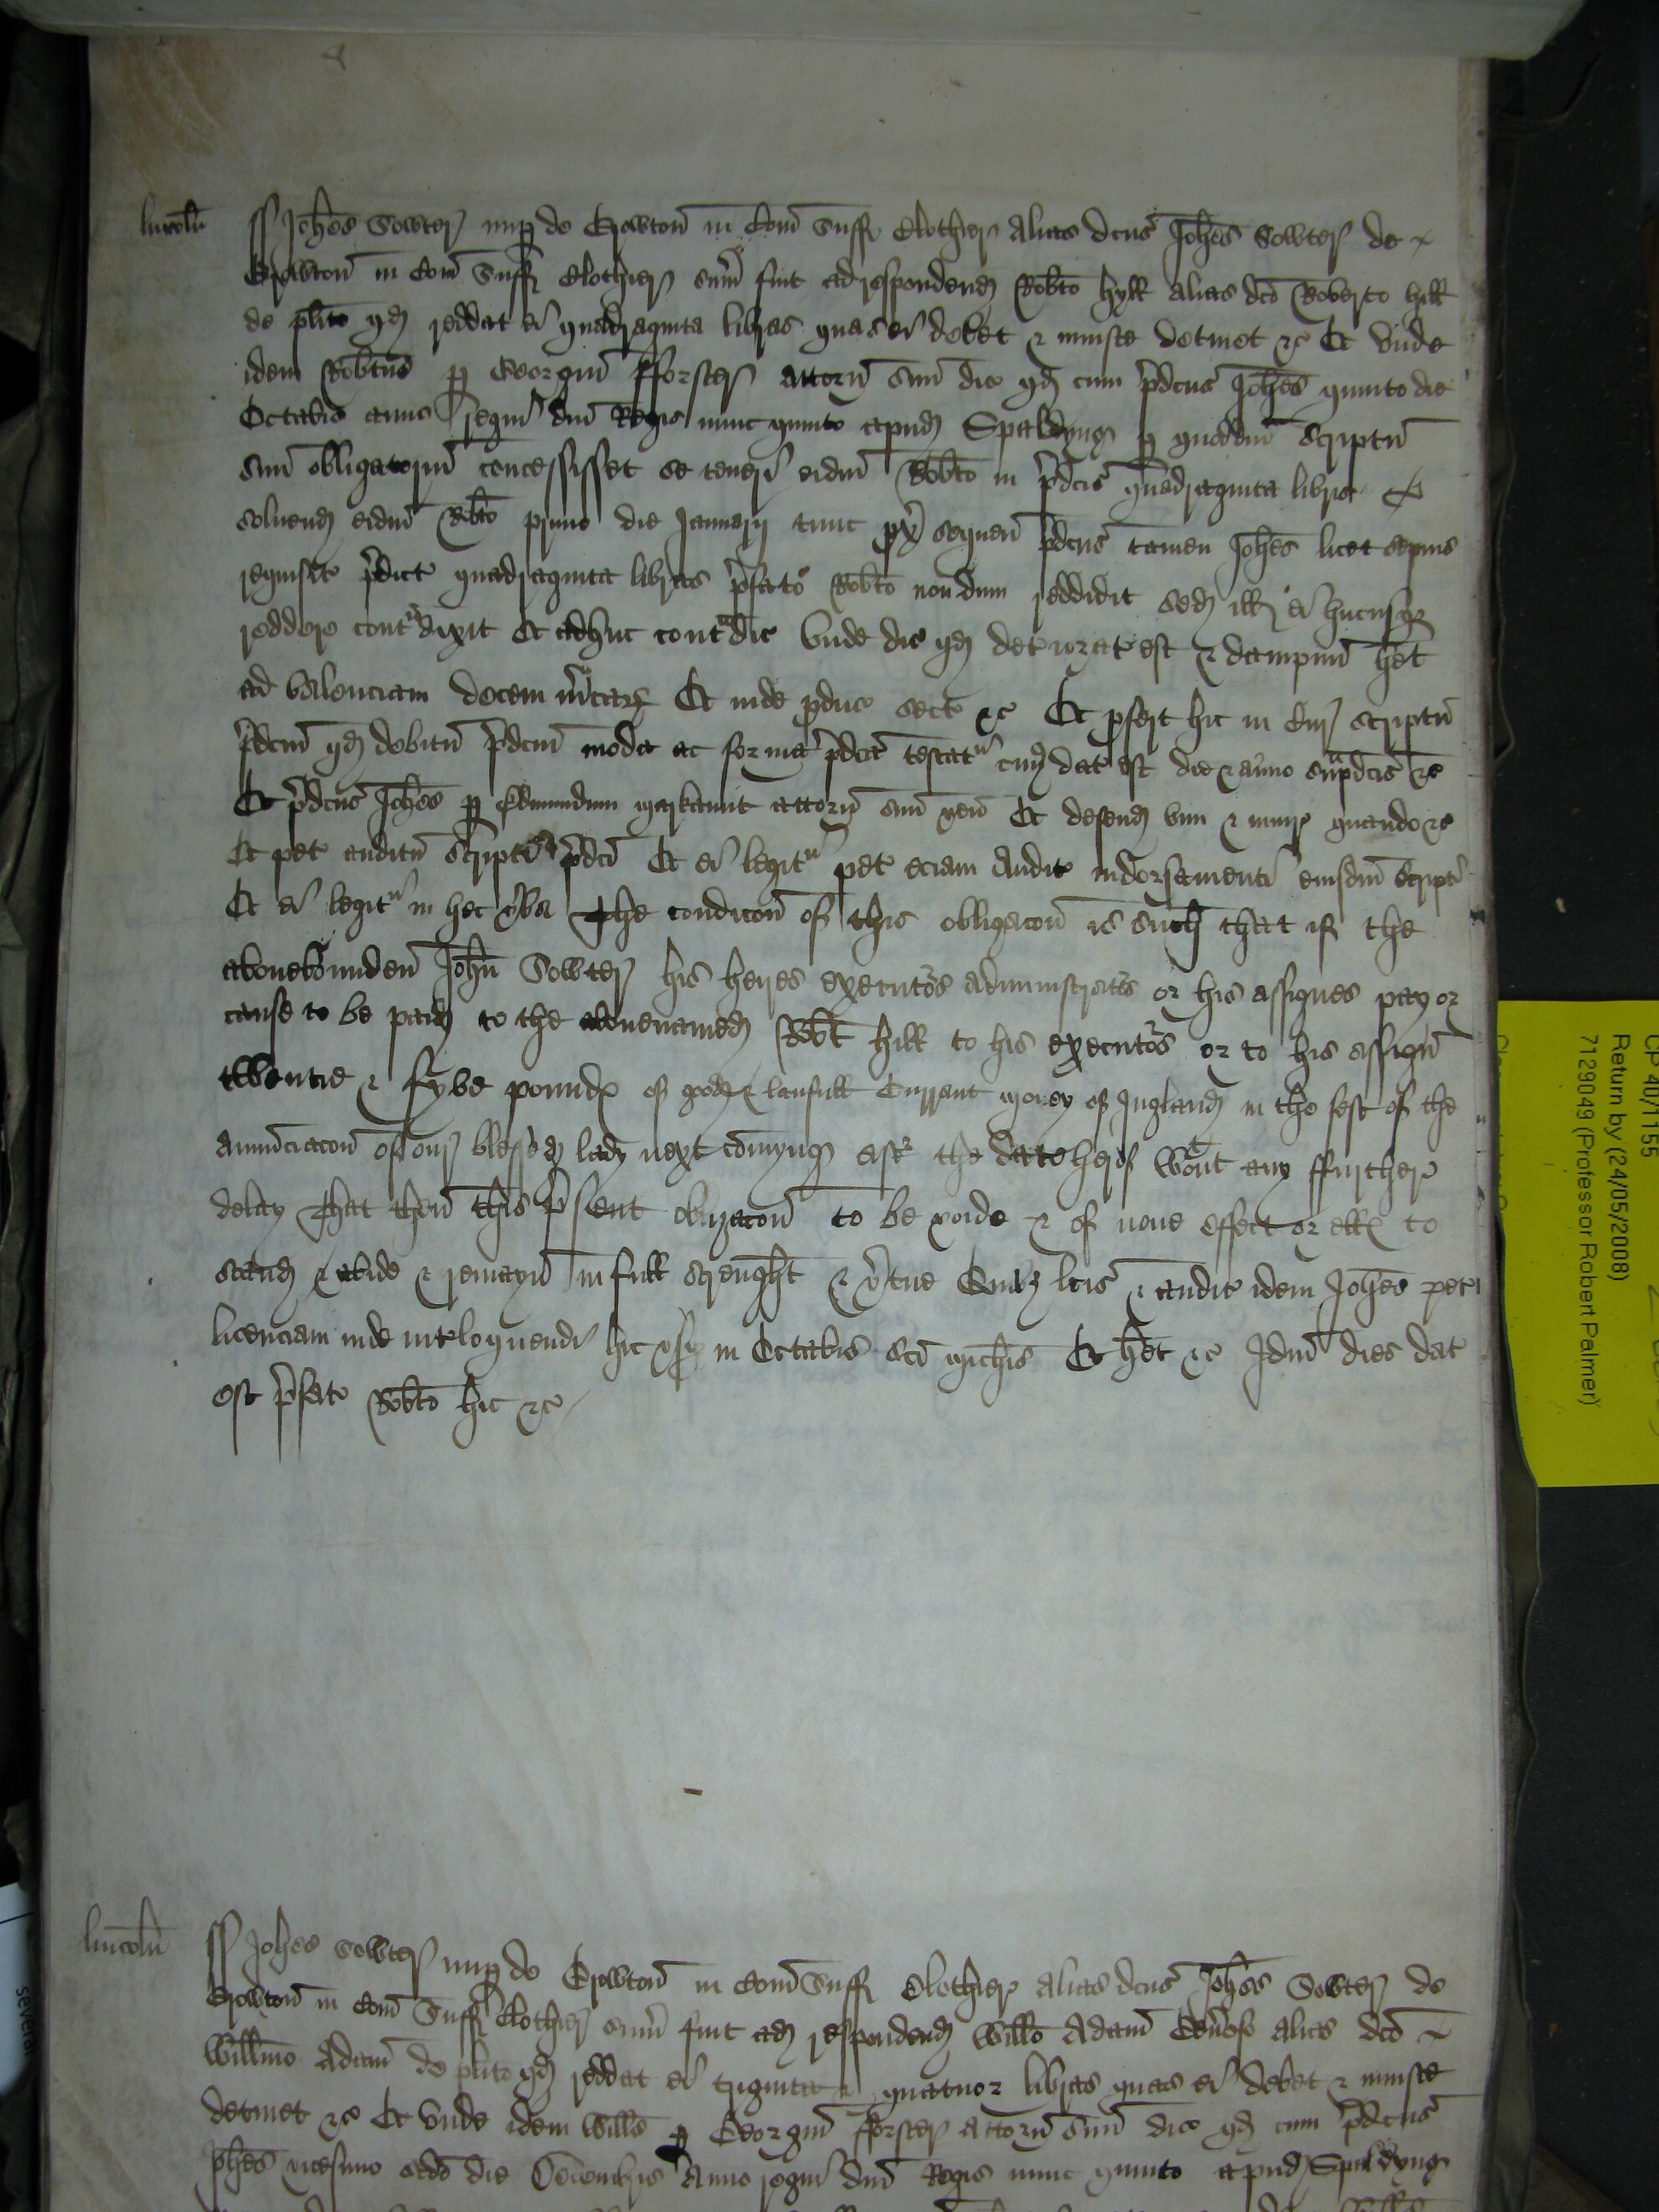 lincoln
ss Johes Sowter nup de Growton in Com Suff Clothier alias dcus Johes Sowter de
Growton in Com Suff Clothier sum fuit ad respondend Robto Hyll alias dco Roberto Hill
de plito qd reddat ei quadraginta libras quas ei debet & iniuste detinet &c Et unde
idem Robtus p Georgiu fforster attorn suu dic qd cum pdcus Johes quinto die
Octobis anno regni dni Regis nunc quinto apud Spaldyng p quoddam scriptu
suu obligatoriu concessisset se teneri eidm Robto in pdcis quadraginta libris
soluend eidm Robto primo die Januarij tunc px sequen pdcus tamen Johes licet sepius
requisit pdict quadraginta libras pfato Robto nondum reddidit sed ill ei hucusq
reddere contadixit Et adhuc contadic Unde dic qd deteriorat est & dampnu het
ad valenciam decem marcar Et inde pduc sect &c Et pfert hic in Cur scriptu
pdcm qd debitu pdcm modo ac forma pdca testatur cuius dat est die & anno supdcis &c
Et pdcus Johes p Edmundum Markaunt attorn suu ven Et defend vim & iniur quando &c
Et pet auditu scripti pdci Et ei legitur pet eciam audit indorsamenti eiusdm scripti
Et ei legitur in hec vba The condicon of this obligacon is such that if the
abovebounden John Sowter his heyres executors administrators or his assignes pay or
cause to be paid to the abovenamed Robt Hill to his executors or to his assign
twentie & fyve pounds of good & laufull Currant money of Ingland in the fest of the
annunciacon of our blessed lady next comyng aft the date herof wout any ffurther
delay That then this psent obligacon to be voide & of none effect or ells to
stand & abide & remayn in full strenght & vtue Quibz lcis & audit idem Johes pet
licenciam inde intloquendi hic usq in Octabis sci Michis Et het &c Idm dies dat
est pfato Robto hic &c
lincoln
ss Johes Sowter nup de Growton in Com Suff Clothier alias dcus Johes Sowter de
Growton in Com Suff Clothier sum fuit ad respondend Willo Adam alias dco
Willmo Adam de plito qd reddat ei triginta & quatuor libras quas ei debet & iniuste
detinet &c Et unde idem Wills p Georgiu fforster attorn suu dic qd cum pdcus
Johes vicesimo scdo die Decembris Anno regni dni Regis nunc quinto apud Spaldyng
CP 40/1155
Return by (24/05/2008)
7129049 (Professor Robert Palmer)
several